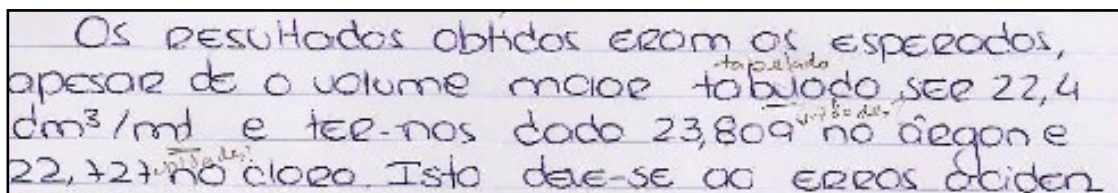 Os resultados obtidos eram os esperados,
tapelado
apesar de o volume maior tabulado ser 22,4
dm³/mol e ter-nos dado 23,809 unidades? no árgon e
22,727 unidades? no cloro. Isto deve-se ao erros aciden